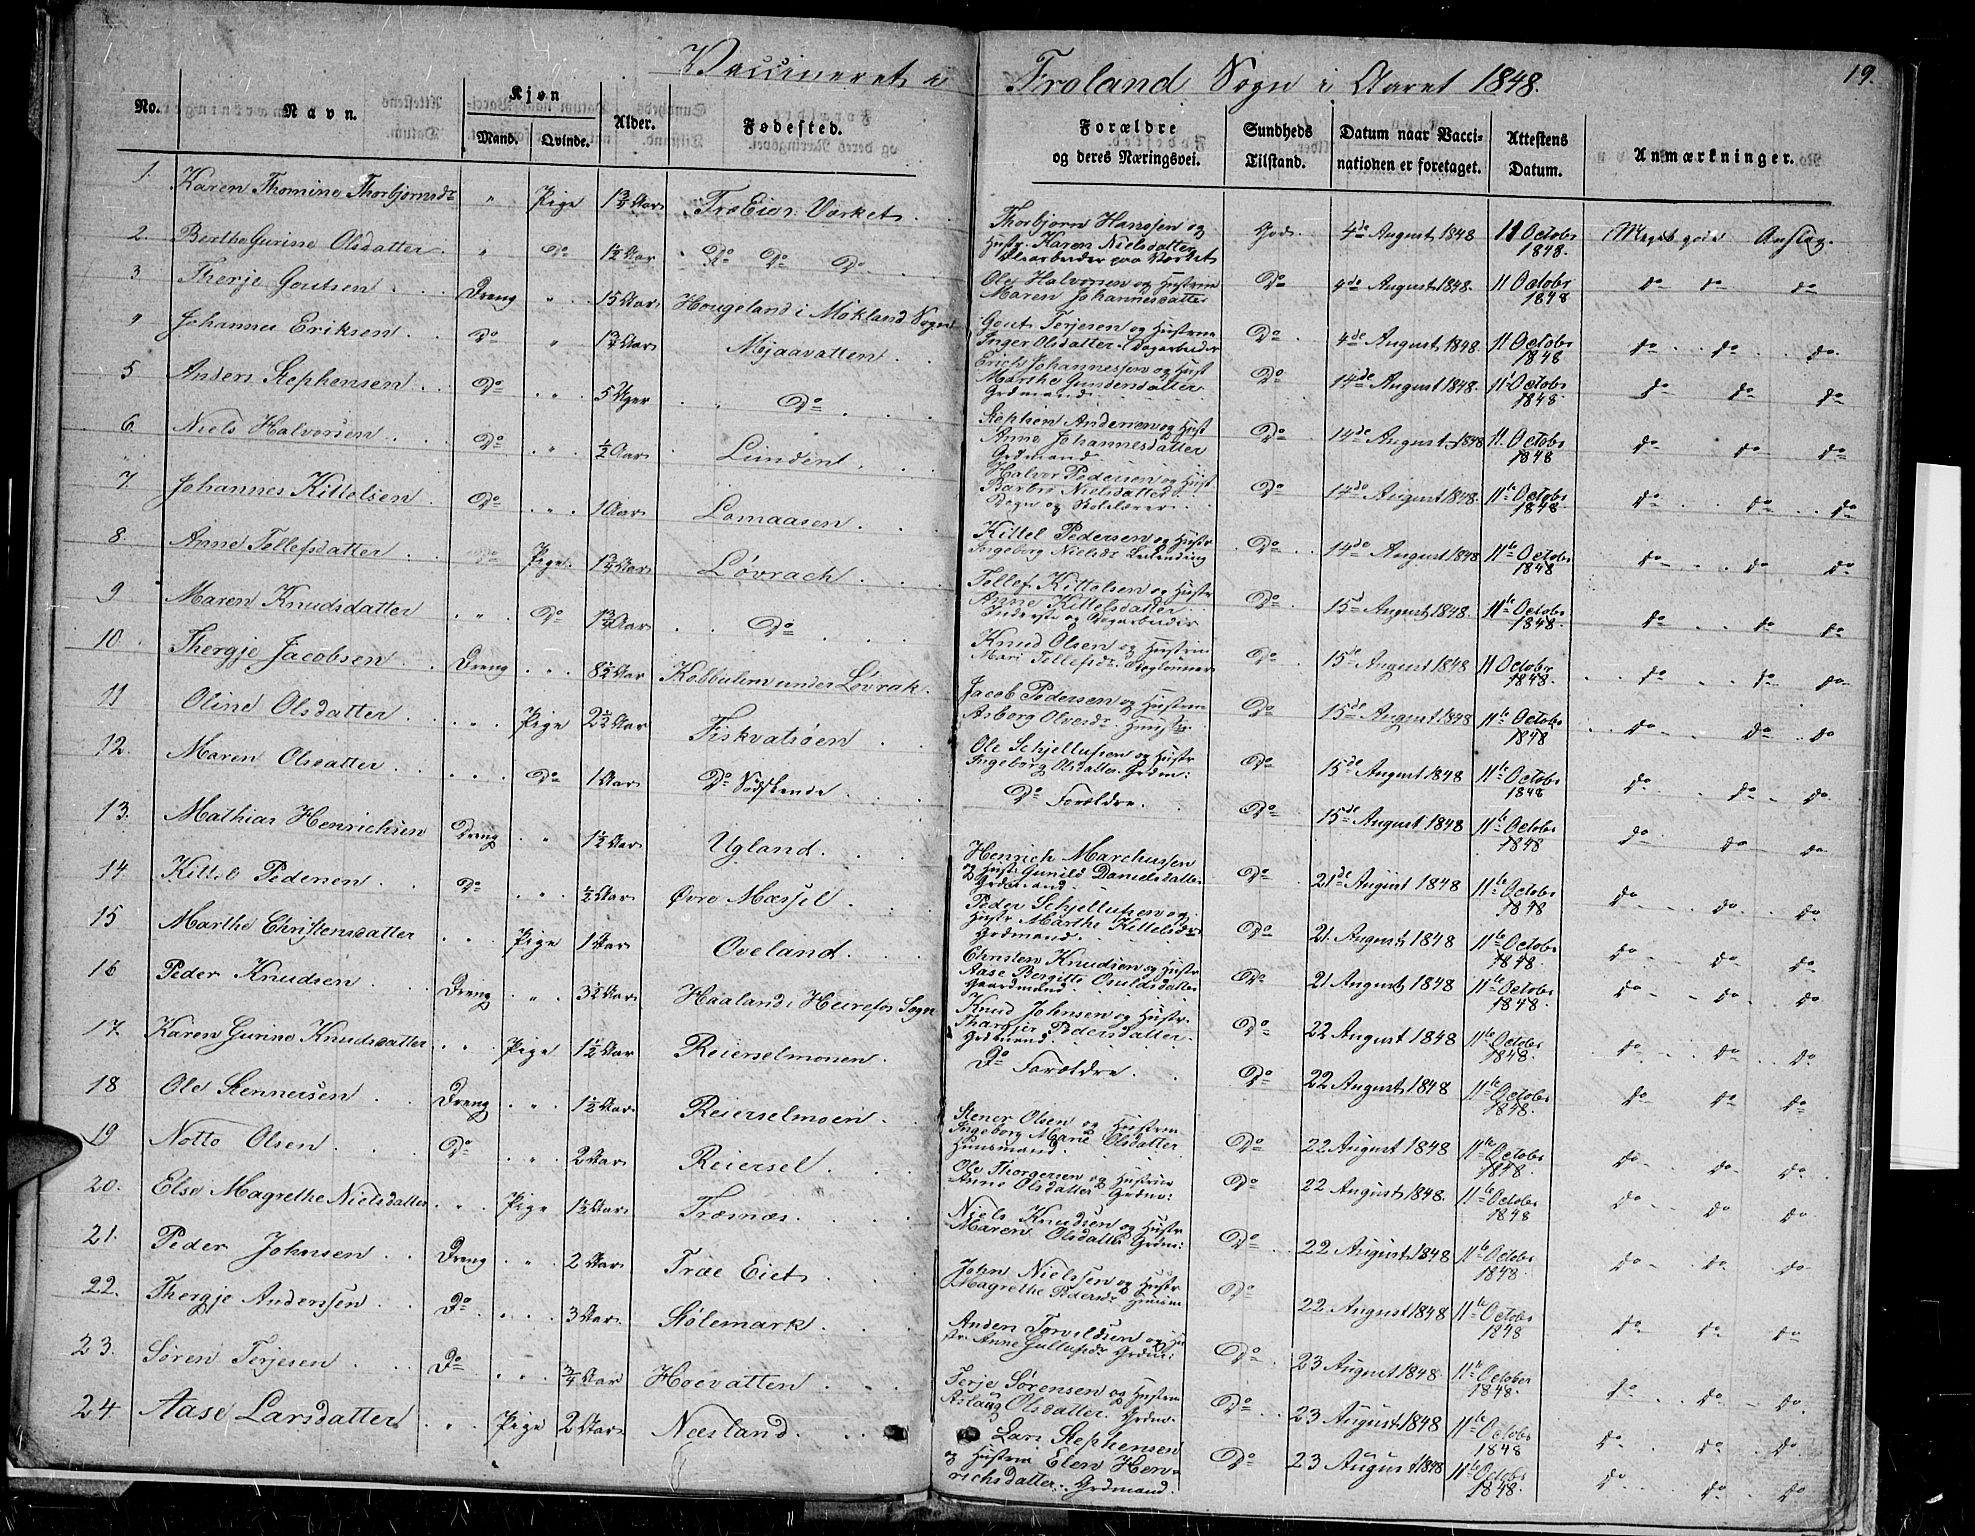 Vaccineret i Froland Sogn i Aaret 1848. 19.
No. Navn. Kjøn Mand. Qvinde. Alder. Fødested. Forældre og deres Næringsvei. Sundheds Tilstand. Datum naar Vaccinationen er foretaget. Attestens Datum. Anmærkninger.
1. Karen Thomine Thorbjornsdr " Pige 1¾ Aar Værket Thorbjorn Hanssen og Hustr. Karen Nielsdatter paa Værket God 4de August 1848 11 Octobr 1848. Meget gode Anslag.
2. Berthe Gurine Olsdatter " Do 1½ Aar Do Do Do Ole Halvorsen og Hustrue Maren Johannesdatter Do 4de August 1848. 11 Octobr 1848 do do do
3 Therje Goutsen Dreng " 15 Aar Hougeland i Mokland Sogn Gout Terjesen og Hustrue Inger Olsdatter Dagarbeider Do 4de August 1848. 11 Octobr 1848 do do do.
" Johannes Eriksen Do " 1¾ Aar Mjaavatten Erich Johannessen og Hust Marthe Gundersdatter Grdmand Do 14de August 1848. 11 Octobr 1848. do do do
5 Anders Stephensen Do " 5 Uger Do Stephen Andersen og Hust Anne Johannesdatter Grdmand Do 14de August 1848 11. Octobr 1848 do do do
6. Niels Halvorsen Do " ½ Aar Lunden Halvor Pedersen og Hust Barbro Nielsdatter Do 14de August 1848. 11te Octobr 1848. do do do
7. Johannes Kittelsen Do " 1 Aar Lomaasen Kittel Pedersen og Hustr Ingeborg Nielsdr Do 14de August 1848 11te Octobr 1848. do do do
8 Anne Tellefsdatter Pige 1¾ Aar Løvrach Tellef Kittelsen og Hustr Anne Kittelsdatter Inderste og Dagarbeider Do 15d August 1848. 11te Octobr 1848. do do do
9 Maren Knudsdatter " Do 1¾ Aar Do Knud Olsen og Hustrue Mari Tellefsdr Do 15de August 1848 11 Octobr 1848. do do do
10. Thergje Jacobsen Dreng " 8½ Aar under Løvrak. Jacob Pedersen og Hustrue Asborg Olversdr Do 15de August 1848 11te Octobr 1848 do do do
11 Oline Olsdatter " Pige 2½ Aar Fiskvatsøen Ole Schjellufsen og Hustr Ingeborg Olsdatter. Grdm: Do 15de August 1848 11te Octobr 1848 do do do.
12. Maren Olsdatter " Do 1 Aar Do Sødskende Do Forældre. Do 15de August 1848 11te Octobr 1848 do do do
13. Mathias Henrichsen Dreng " 1½ Aar Ugland. Henrich Marchussen og Hust. Gunild Danielsdatter Grdmand. Do 21de August 1848 11te Octobr 1848 do do do
14 Kittel Pedersen Do " ½ Aar Øvre Mæssel Peder Schjellufsen og Hustr Marthe Kittelsdr Grdmand. Do 21. August 1848 11te Octobr 1848. do do do
15 Marthe Christensdatter " Pige 1 Aar Oveland Christen Knudsen og Hustr Aase Bergitte Osuldsdatter Gaardmand. Do 21 August 1848 11te Octobr 1848. do do do
16 Peder Knudsen Dreng " 3½ Aar Haaland i Sogn Knud Johnsen og Hustr. Pedersdatter. Grdmand. Do 22 August 1848 11te Octobr 1848. do do do
17. Karen Gurine Knudsdatter " Pige 1½ Aar Reierselmonen Do Forældre. Do 22 August 1848 11te Octobr 1848. do do do
18 Ole Stennersen Dreng " 1½ Aar Reierselmoen Stener Olsen og Hustrue Ingeborg Marie Olsdatter Huusmand Do 22 August 1848 11te Octobr 1848. do do do
19 Notto Olsen Do " 2 Aar Reiersel Ole Thorgersen og Hustrue Anne Olsdatter Grdm: Do 22 August 1848. 11te Octobr 1848 do do do
20. Else Magrethe Nielsdatter " Pige 1½ Aar Træmæs Niels Knudsen og Hustr Maren Olsdatter Grdm: Do 22 August 1848 11te Octobr 1848. do do do
21. Peder Johnsen Dreng " 2 Aar Træ Eiet John Nielssen og Hustr Magrethe Pedersdr Huusm Do 22 August 1848 11te Octobr 1848 do do do
22. Thergje Anderssen Do " 3 Aar Stølemark Anders Torvildsen og Hustr. Anne Gullufsdr Grdm: Do 23 August 1848. 11te October 1848. do do do.
23. Søren Terjesen Do " ¾ Aar Høevatten Terje Sørensen og Hustrue Aslaug Olsdatter. Grdm. Do 23 August 1848 11te Octobr 1848 do do do
24 Aase Larsdatter " Pige 2 Aar Næsland Lars Stephensen og Hustrue Elen Henrichsdatter. Grdmand. Do 23 August 1848 11te Octobr 1848. do do do